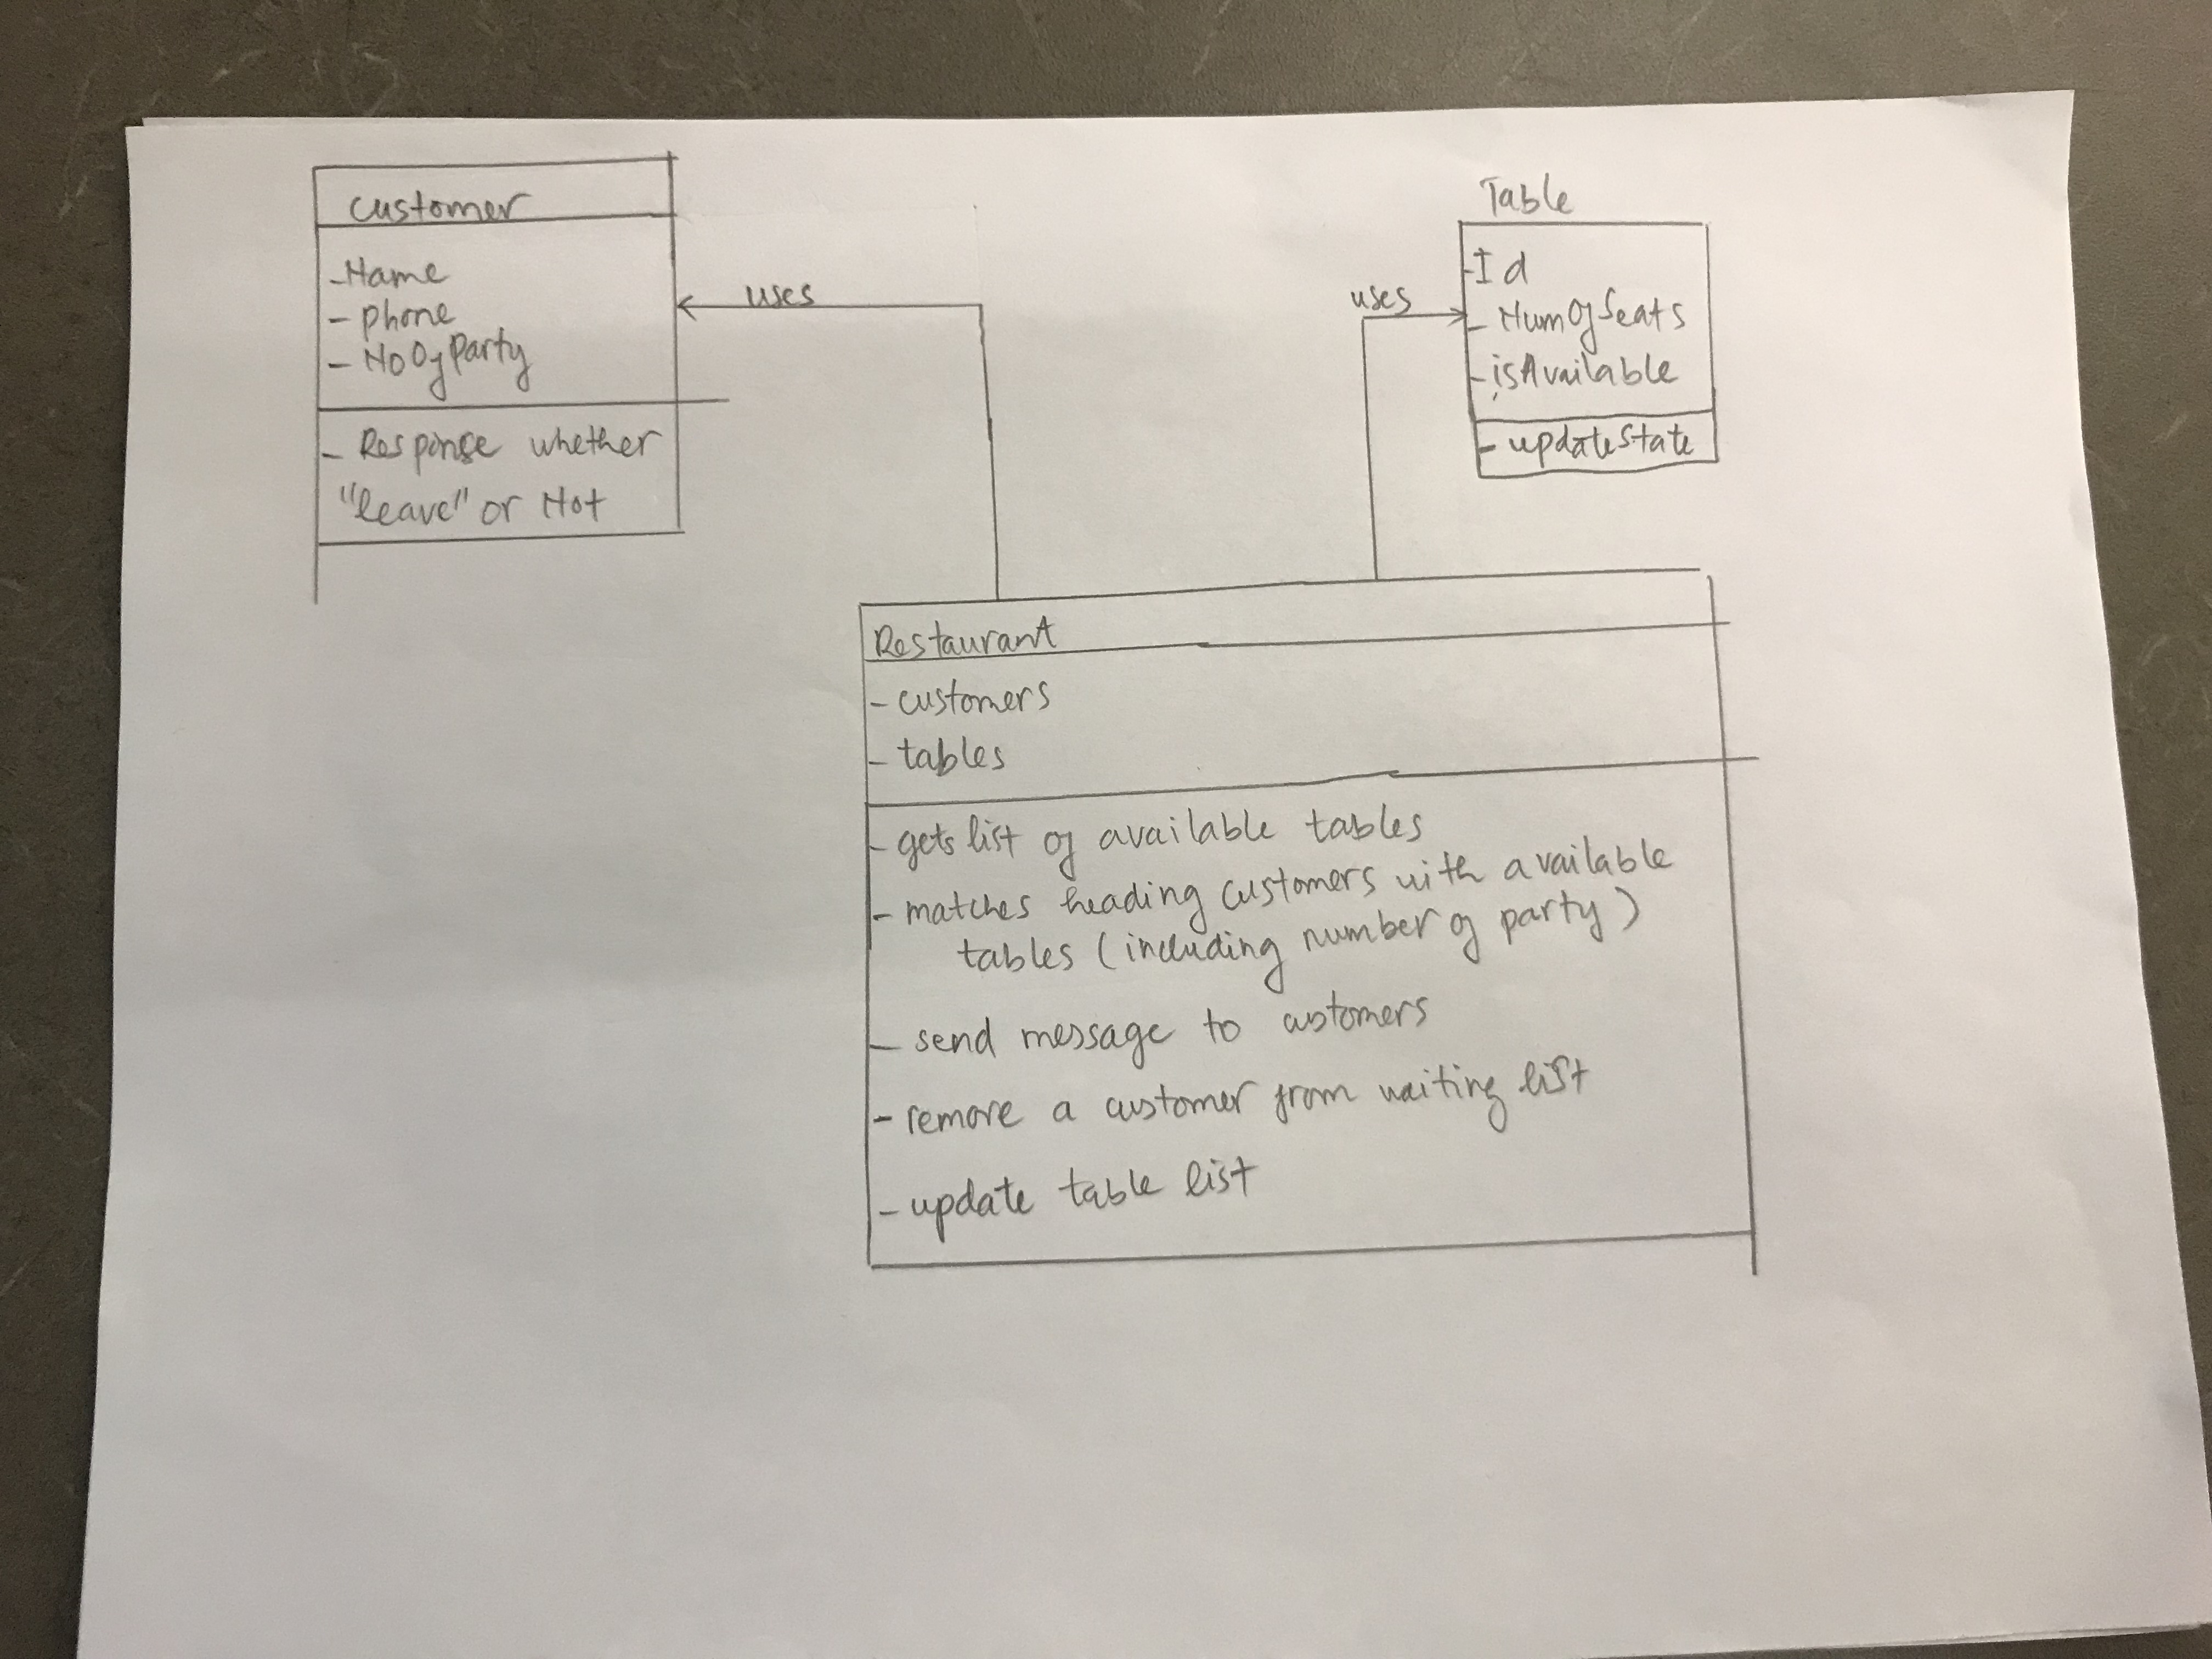 Customer
- Name
- phone
- NoOfParty
- Response whether
"leave" or Not
uses
Table
- Id
- NumOfSeats
- isAvailable
- updateState
uses
Restaurant
- customers
- tables
- gets list of available tables
- matches heading customers with available
tables (including number of party)
- send message to customers
- remove a customer from waiting list
- update table list